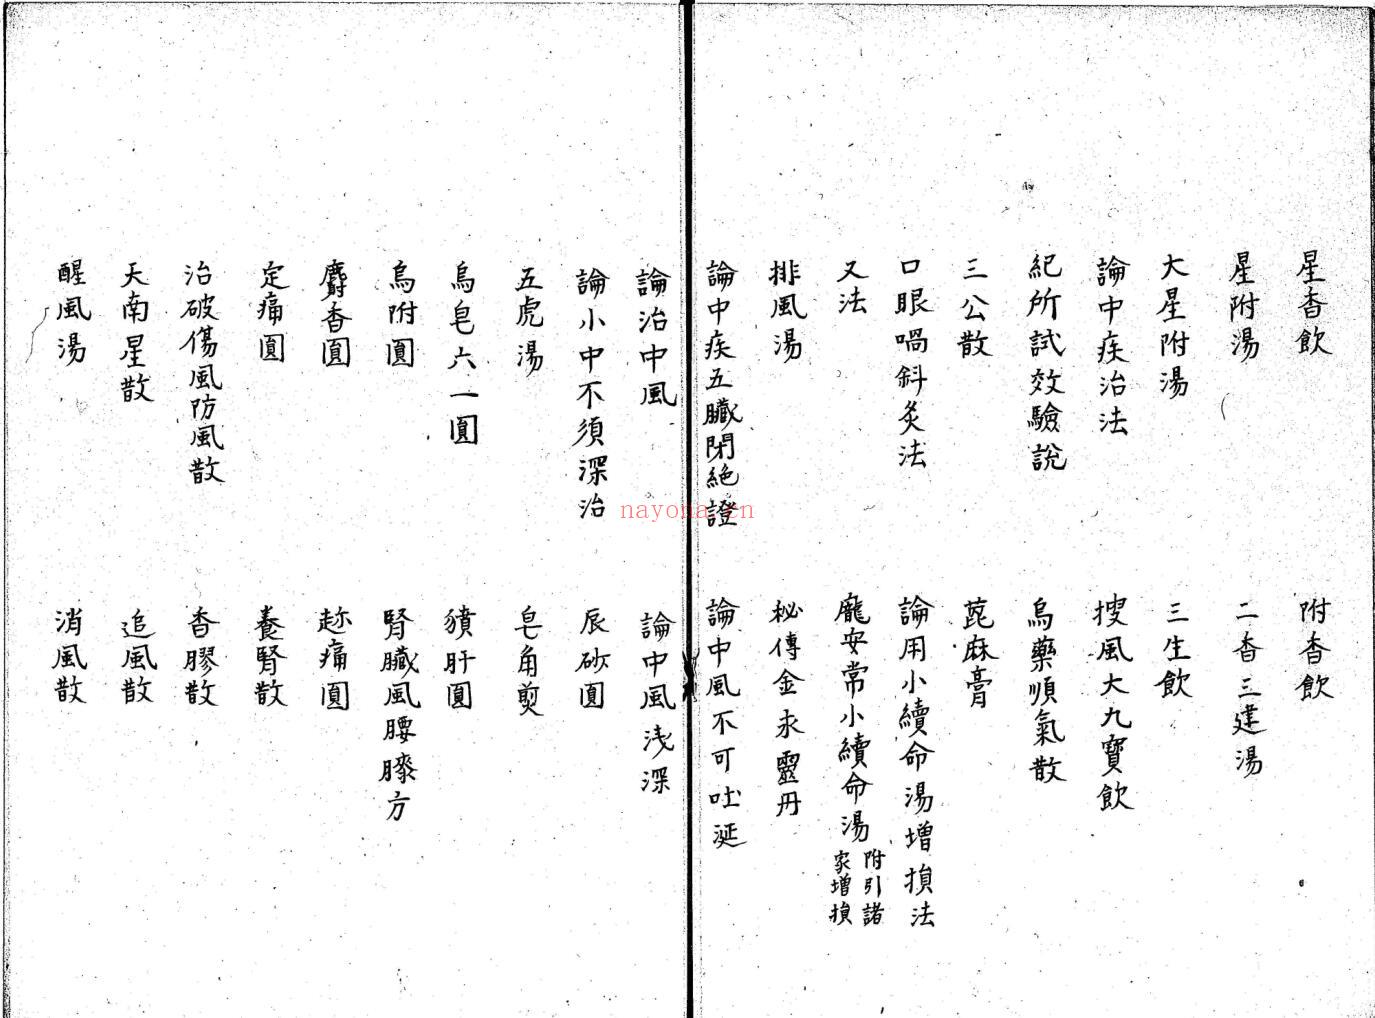 星香飲
附香飲
星附湯
二香三建湯
大星附湯
三生飲
論中疾治法
搜風大九寳飲
紀所試效驗說
烏藥順氣散
三公散
萞麻膏
口眼喎斜灸法
論用小續命湯增損法
又法
龐安常小續命湯附引諸家增損
排風湯
秘傳金汞靈丹
論中疾五臟閉絕證
論中風不可吐涎
論治中風
論中風淺深
論小中不須深治
辰砂圓
五虎湯
皂角煎
烏皂六一圓
獖肝圓
烏附圓
腎臟風腰膝方
麝香圓
趂痛圓
定痛圓
養腎散
治破傷風防風散
香膠散
天南星散
追風散
醒風湯
消風散
nayona.cn